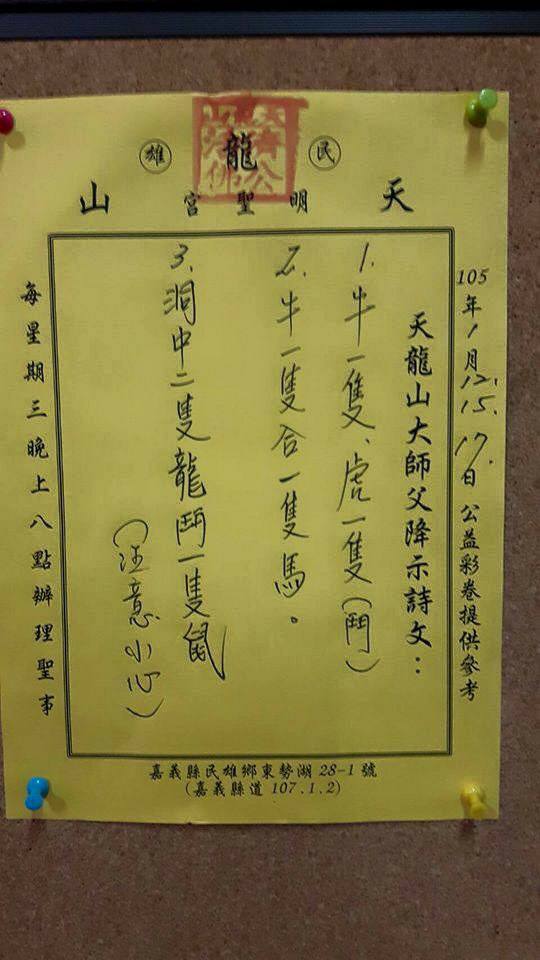 民
龍
雄
天
明聖宮
山
105年1月12.15.17.日 公益彩卷提供參考
天龍山大師父降示詩文：
1.牛一隻、虎一隻(鬥)
2.牛一隻合一隻馬。
3.洞中二隻龍鬥一隻鼠
(注意小心)
每星期三晚上八點辦理聖事
嘉義縣民雄鄉東勢湖28-1號
(嘉義縣道107.1.2)